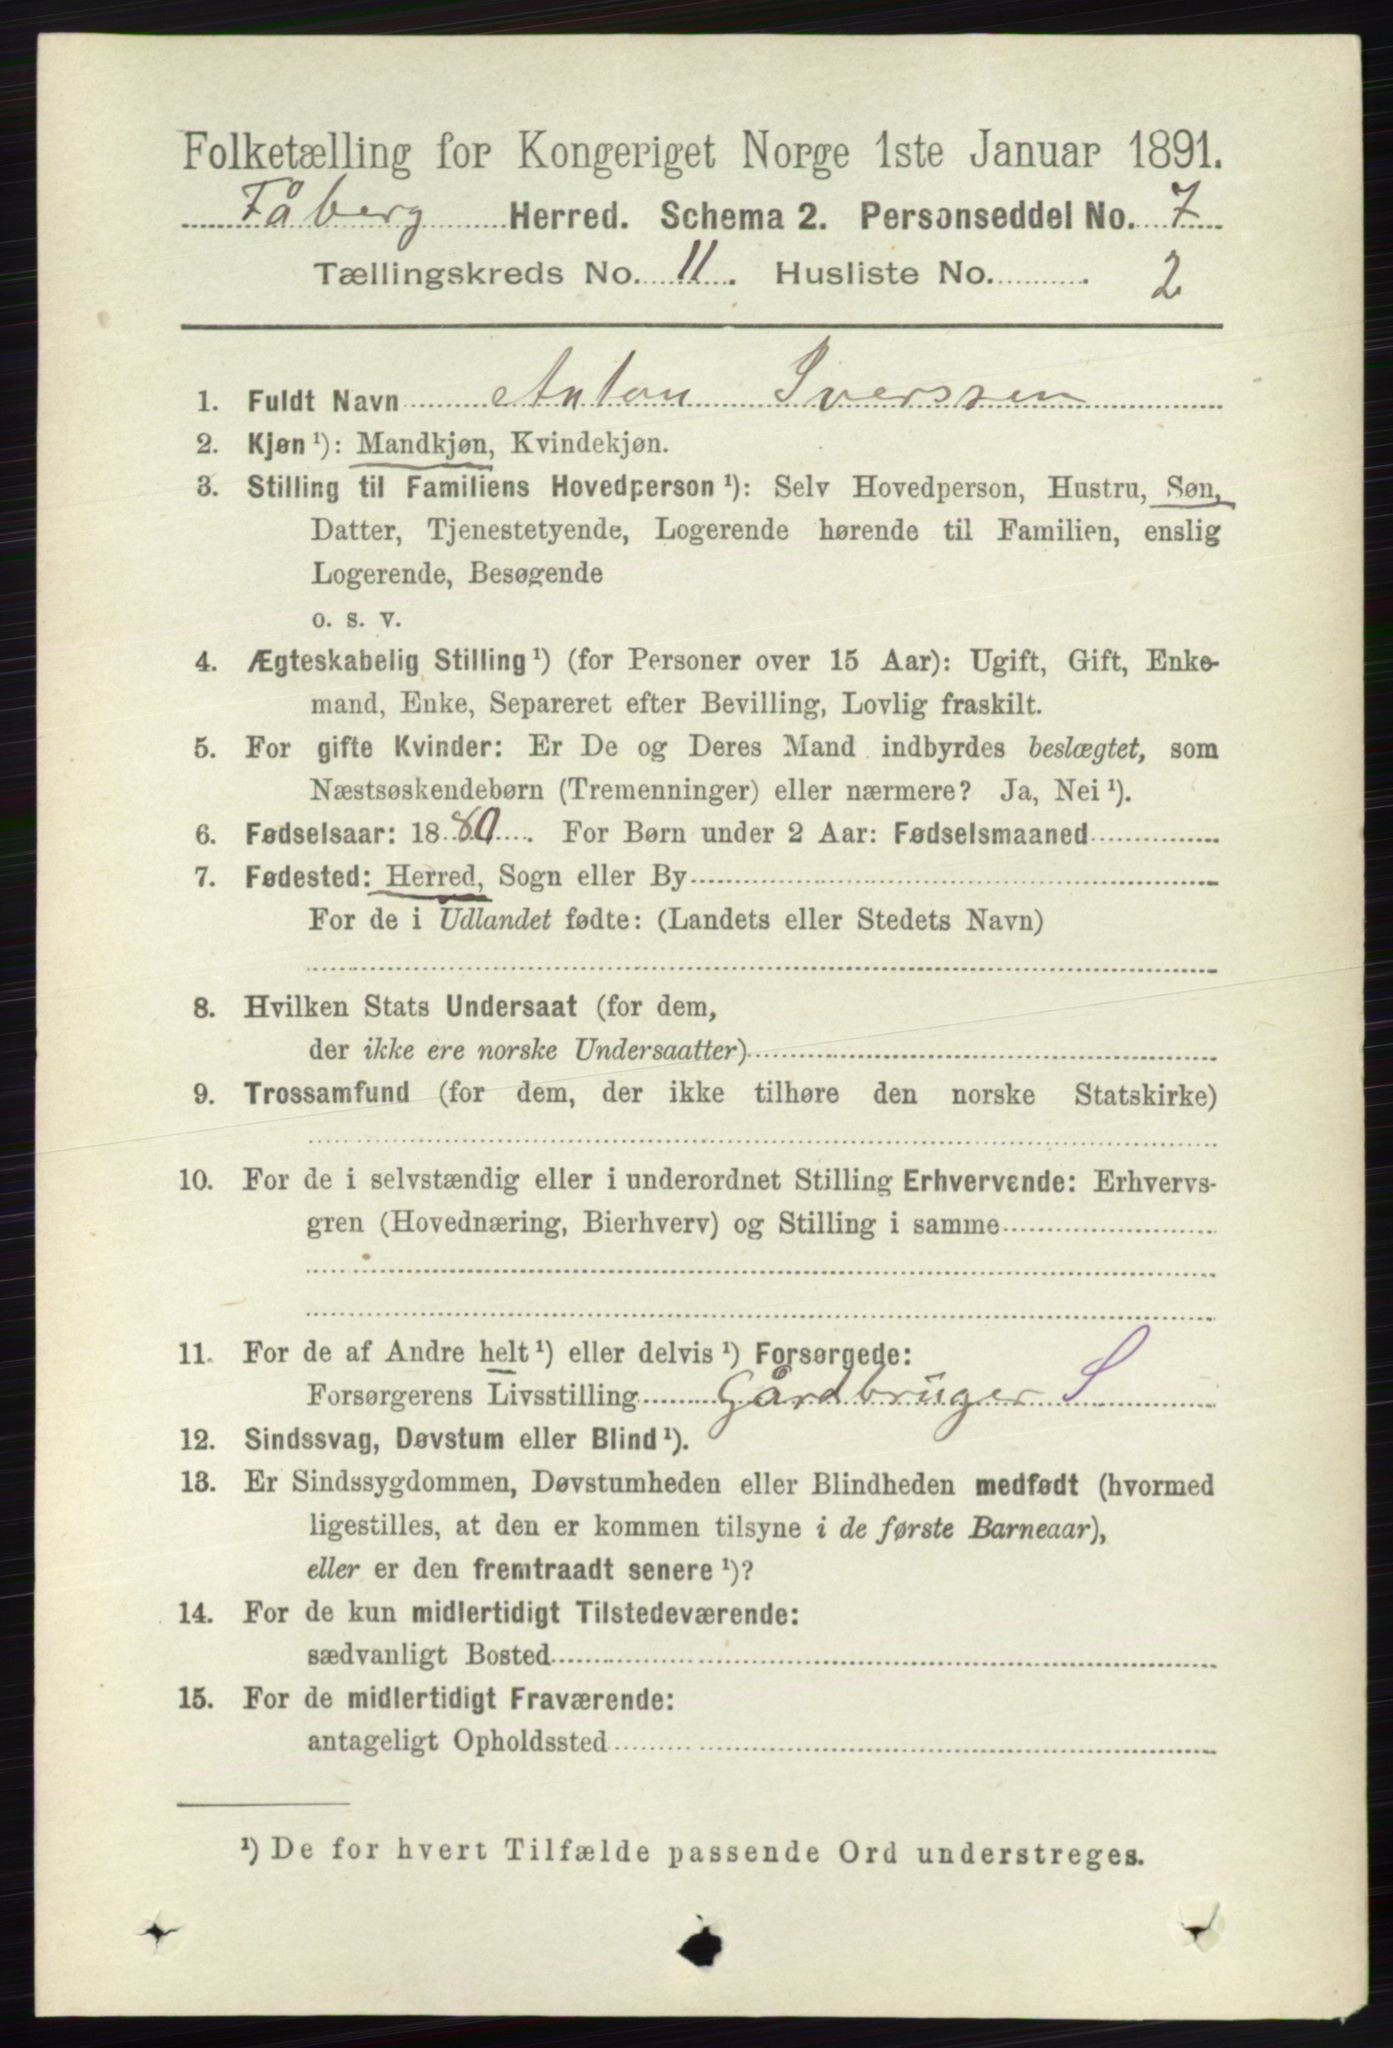 Folketælling for Kongeriget Norge 1ste Januar 1891.
Fåberg Herred. Schema 2. Personseddel No. 7
Tællingskreds No. 11. Husliste No. 2
1. Fuldt Navn Anton Iverssen
2. Kjøn ¹): Mandkjøn, Kvindekjøn.
3. Stilling til Familiens Hovedperson ¹): Selv Hovedperson, Hustru, Søn,
Datter, Tjenestetyende, Logerende hørende til Familien, enslig
Logerende, Besøgende
o. s. v.
4. Ægteskabelig Stilling ¹) (for Personer over 15 Aar): Ugift, Gift, Enke-
mand, Enke, Separeret efter Bevilling, Lovlig fraskilt.
5. For gifte Kvinder: Er De og Deres Mand indbyrdes beslægtet, som
Næstsøskendebørn (Tremenninger) eller nærmere? Ja, Nei ¹).
6. Fødselsaar: 1880. For Børn under 2 Aar: Fødselsmaaned
7. Fødested: Herred, Sogn eller By
For de i Udlandet fødte: (Landets eller Stedets Navn)
8. Hvilken Stats Undersaat (for dem,
der ikke ere norske Undersaatter)
9. Trossamfund (for dem, der ikke tilhøre den norske Statskirke)
10. For de i selvstændig eller i underordnet Stilling Erhvervende: Erhvervs-
gren (Hovednæring, Bierhverv) og Stilling i samme
11. For de af Andre helt ¹) eller delvis ¹) Forsørgede:
Forsørgerens Livsstilling Gårdbrüger S
12. Sindssvag, Døvstum eller Blind ¹).
13. Er Sindssygdommen, Døvstumheden eller Blindheden medfødt (hvormed
ligestilles, at den er kommen tilsyne i de første Barneaar),
eller er den fremtraadt senere ¹)?
14. For de kun midlertidigt Tilstedeværende:
sædvanligt Bosted
15. For de midlertidigt Fraværende:
antageligt Opholdssted
¹) De for hvert Tilfælde passende Ord understreges.